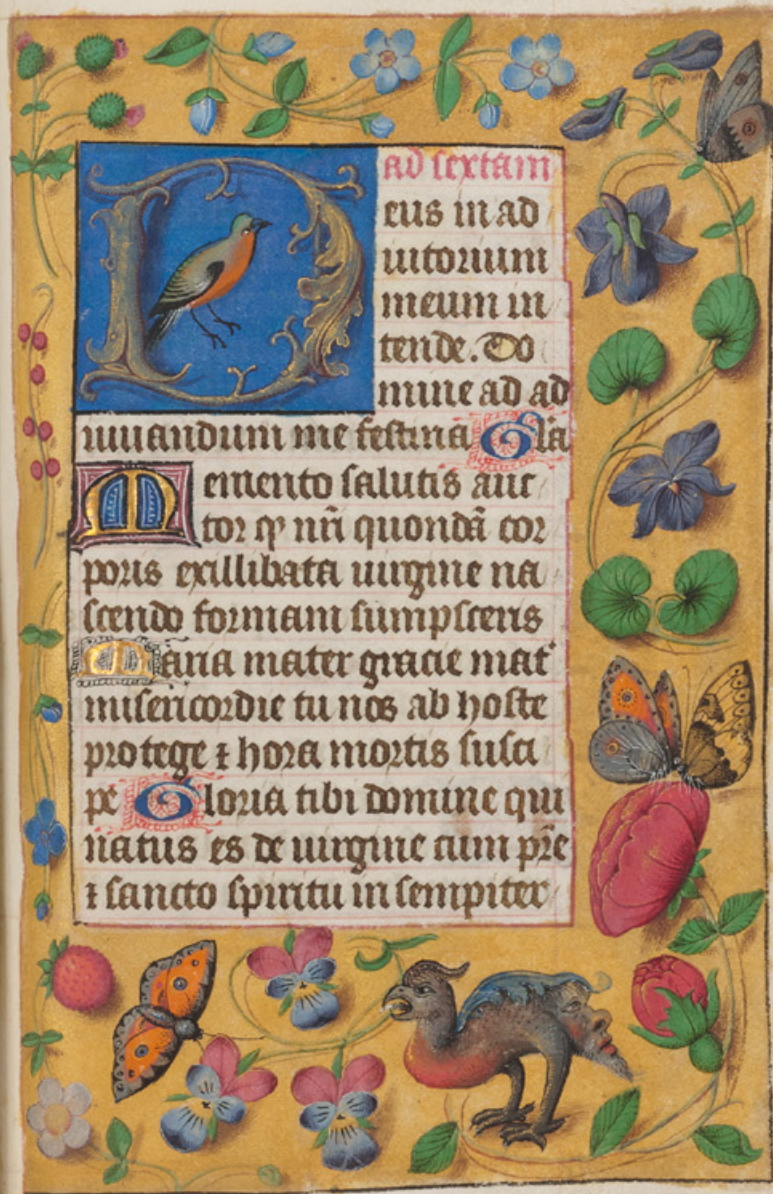 ad sextam
Deus in ad
iutorium
meum in
tende. Do
mine ad ad
iuuandum me festina Gl̄a
Memento salutis auc
tor qͥ nr̄i quondā cor
poris ex illibata uirgine na
scendo formam sumpseris
Maria mater gracie mat᷑
misericordie tu nos ab hoste
protege ⁊ hora mortis susci
pe Gloria tibi domine qui
natus es de uirgine cum pr̄e
⁊ sancto spiritu in sempiter